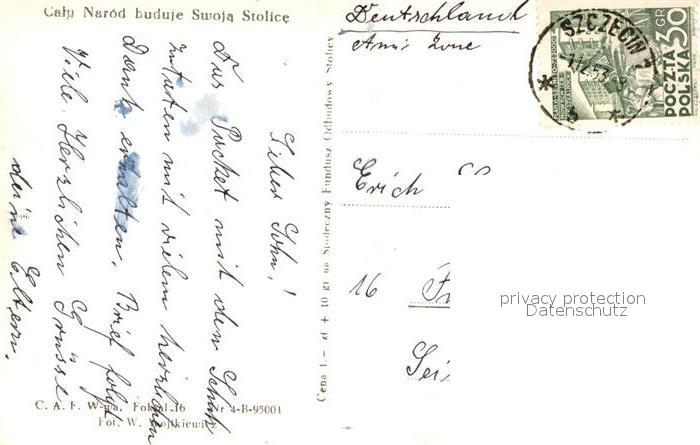 Cały Naród buduje Swoją Stolicę
Lieber Sohn!
Das Packet mit den Schuh
zutaten mit vielem herzlichen
Dank erhalten. Brief folgt
Viele Herzlichen Grüsse
deine Eltern.
C. A. F. W-wa. Foksal 16 Nr 4-B-95001
Fot. W.
Cena 1.— zł + 10 gr na Społeczny Fundusz Odbudowy Stolicy
Deutschland
Ami Zone
SZCZECIN 2
POCZTA 30 GR
POLSKA
Erich
16
privacy protection
Datenschutz